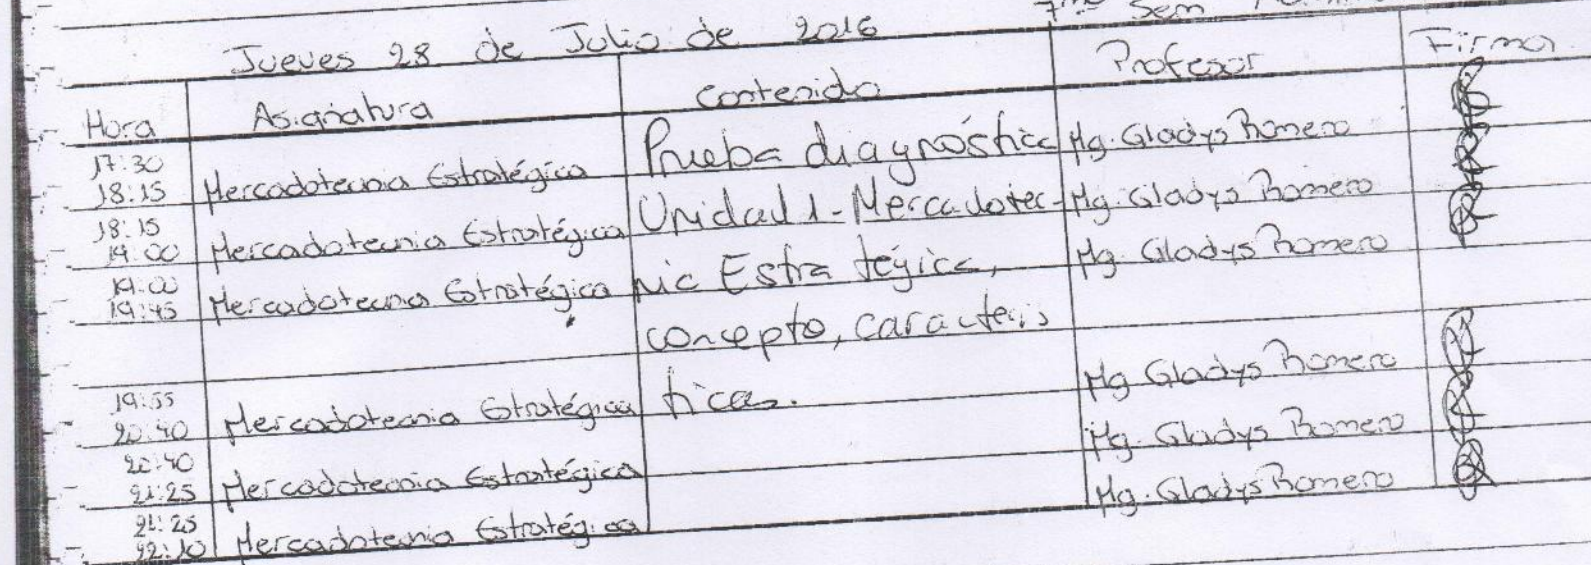 7mo Sem
Jueves 28 de Julio de 2016
Hora Asignatura Contenido Profesor Firma
17:30
18:15 Mercadotecnia Estratégica Prueba diagnóstica Mg. Gladys Romero
18:15
19:00 Mercadotecnia Estratégica Unidad 1 - Mercadotec- Mg. Gladys Romero
19:00
19:45 Mercadotecnia Estratégica nia Estratégica, Mg. Gladys Romero
concepto, caracterís
19:55
20:40 Mercadotecnia Estratégica ticas. Mg Gladys Romero
20:40
21:25 Mercadotecnia Estratégica Mg. Gladys Romero
21:25
22:10 Mercadotecnia Estratégica Mg. Gladys Romero